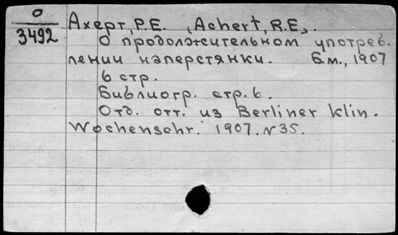 О
3492
Ахерт, Р.Е. (Achert, R.E.).
О продолжительном употреб-
лении наперстянки. Б.м., 1907
6 стр.
Библиогр. стр. 6.
Отд. отт. из Berliner klin.
Wochenschr. 1907. N 35.